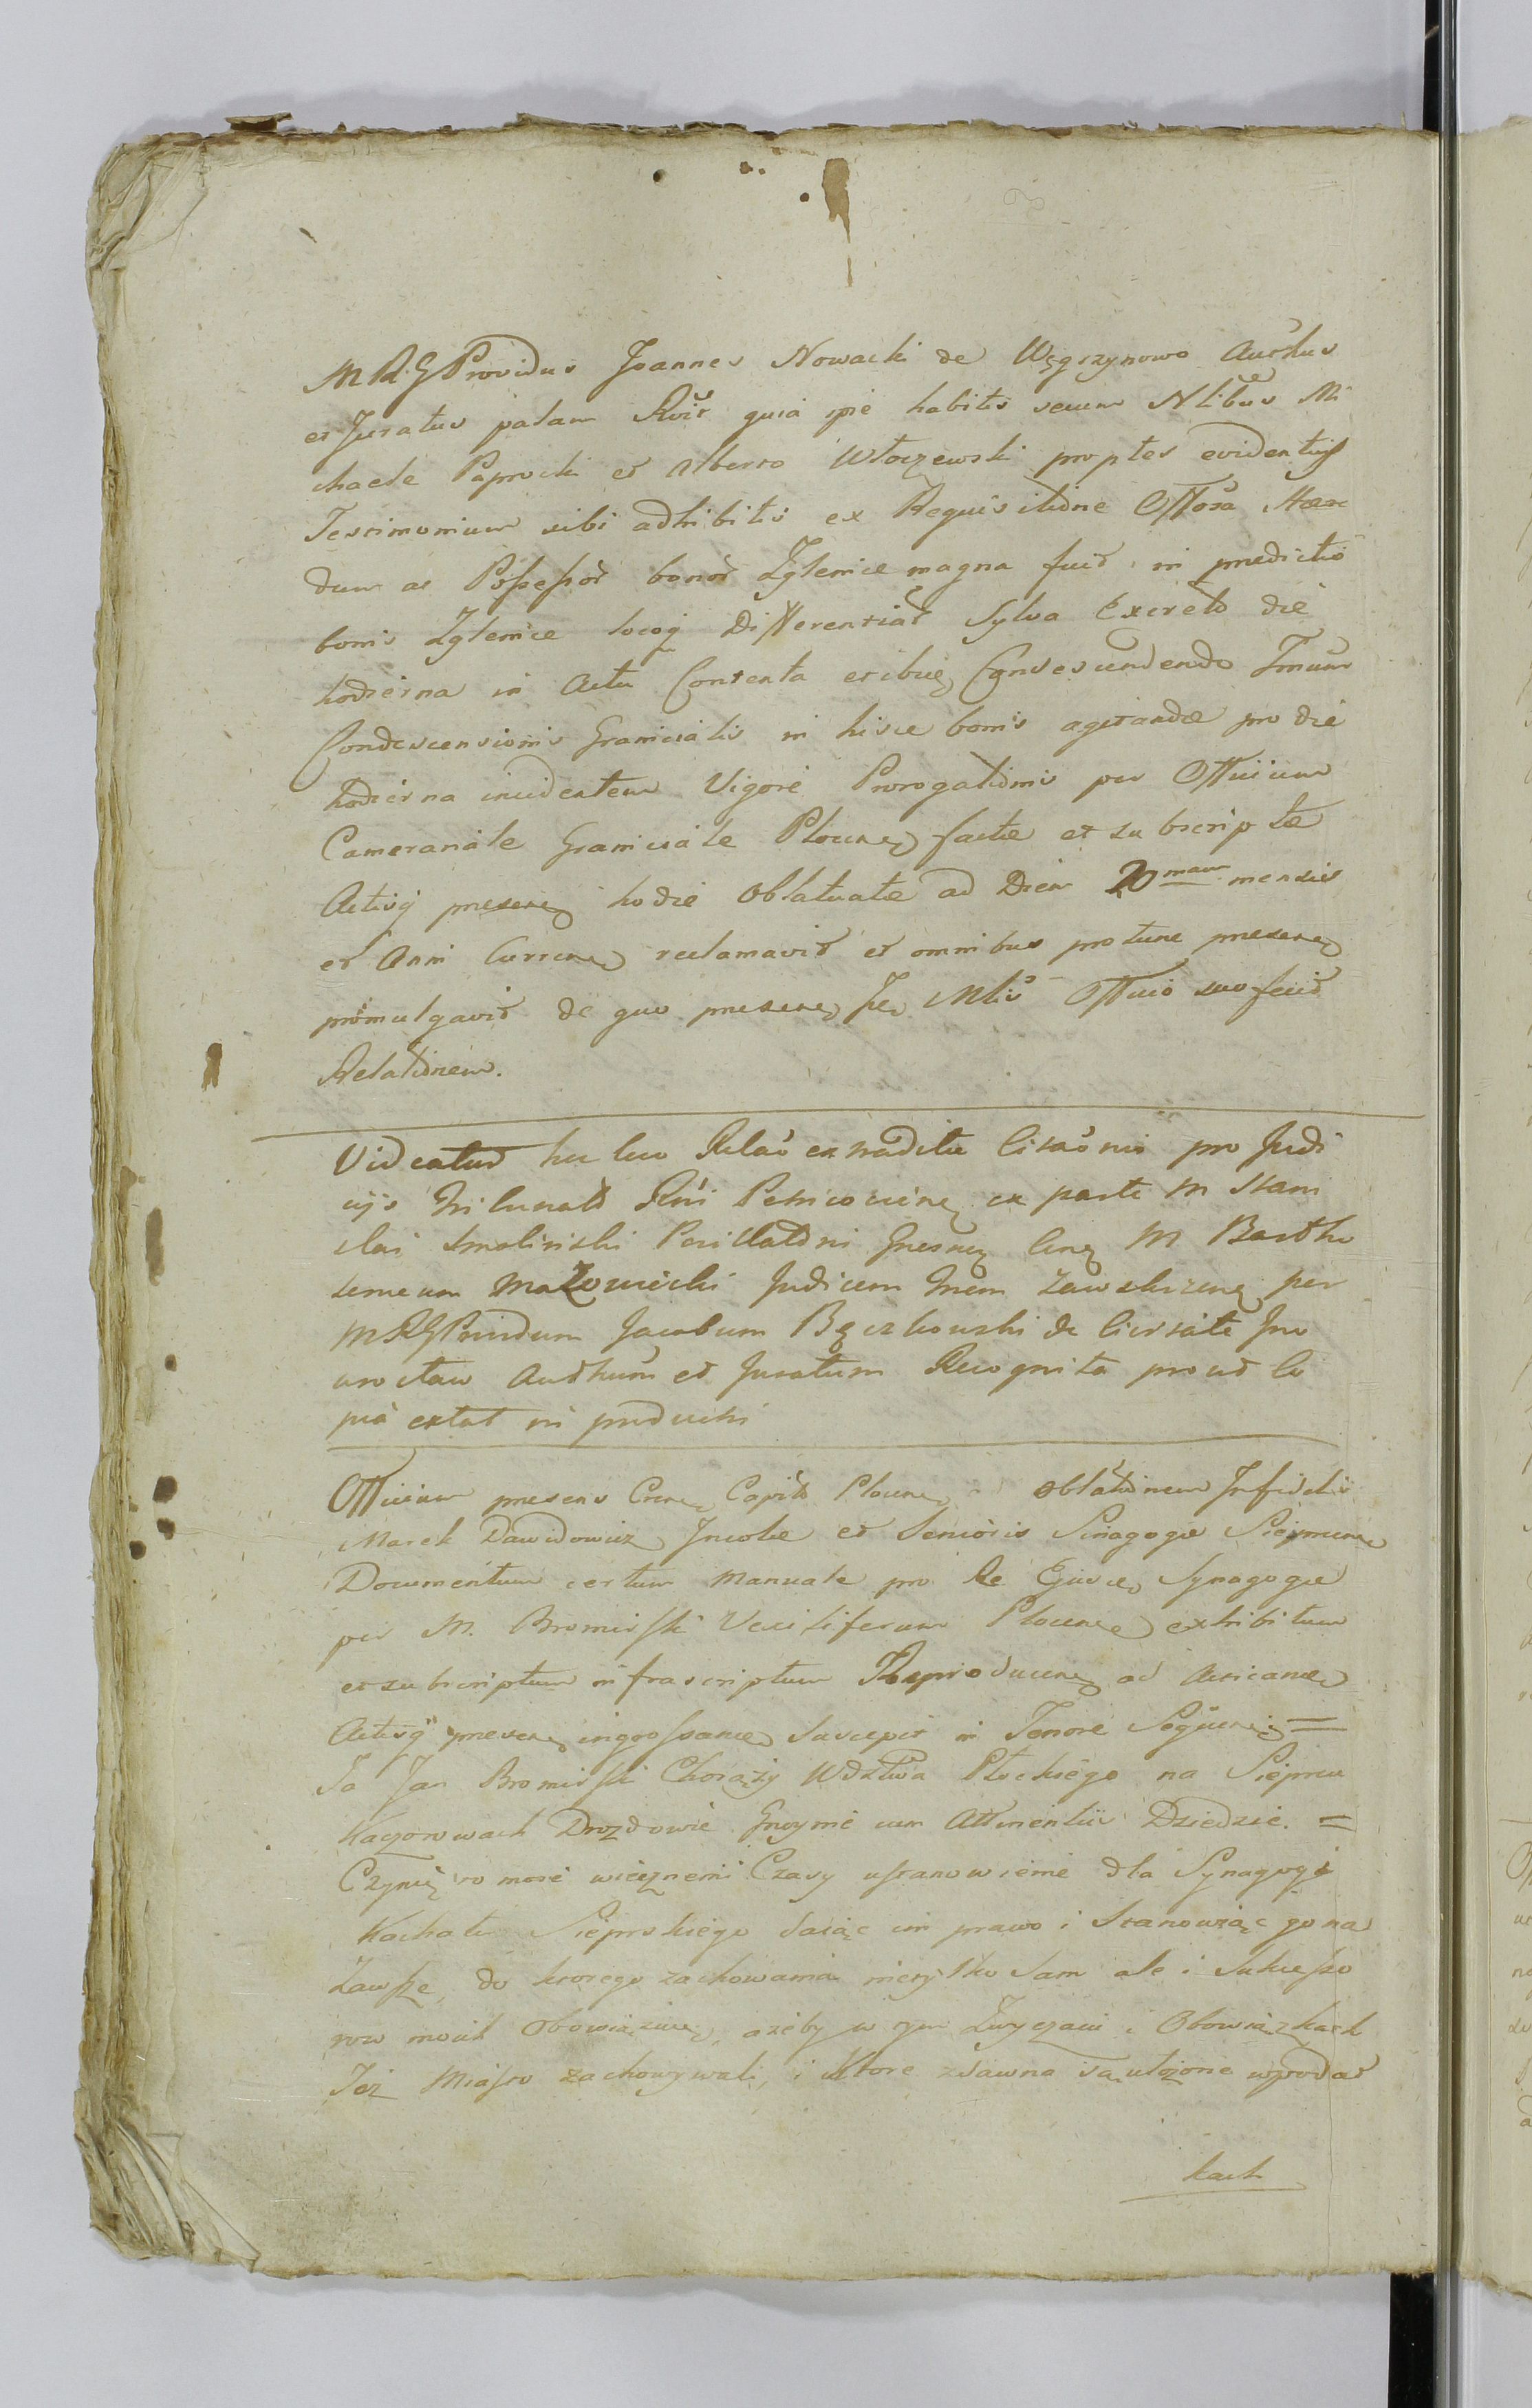 MRG Providus Joannes Nowacki de Węgrzynowo Authus
et Juratus palam Rvit quia ipse habitis secum Nlibus Mi
chaele Paprocki et Alberto Włoczewski propter evidentius
Testimonium sibi adhibitis ex Requisitione Offosa Hære
dum ac Possessor bonor Zglenice magna fuit in predictis
bonis Zglenice locoq Differentiar Sylva Excreto die
hodierna in Actu Contenta ibiq Condescendendo Tminum
Condescensionis Granicialis in hisce bonis agitandæ pro die
hodierna incidentem Vigore Prorogationis per Officium
Cameranale Graniciale Plocen factæ et subscriptæ
Actisq presen hodie Oblatuatæ ad Diem 20mam mensis
et Anni Curren reclamavit et omnibus protunc presen
promulgavit de quo presen se Mlis Officio suo fecit
Relationem.
Videatur hic loco Relao extraditæ Citaonis pro Judi
cijs Tribunal Rni Petricovien ex parte M Stani
slai Smolinski Gnesnen Cne M Bartho
lomeum Mazowiecki Judicem Trem Zawskrzen per
MRG Providum Jacobum Bęczkowski de Civitate Ino
wrocław Authum et Juratum Recognita prout Co
pia extat in
Officium presens Cren Capit Plocen oblationem Infidelis
Marek Dawidowicz Incolæ et Senioris Sinagogæ Siepmcen
Documentum certum manuale pro Re Ejusd Synagogæ
per M. Bromirski Vexiliferum Plocen exhibitum
et subscriptum infrascriptum Reproducen ad Acticand
Actisq presen ingrossand suscepit in Tenore Sequen =
Ja Jan Bromirski Chorąży Wdztwa Płockiego na Sieprcu
Kaczorowach Drozdowie Gnoynie cum Attinentiis Dziedzic. =
Czynię to moie wiecznemi Czasy ustanowienie dla Synagogi
Kachału Sieprskiego daiąc im prawo i Stanowiąc go na
Zawsze, do ktorego zachowania nietylko Sam ale i Sukcesso
row moich Obowiązuię, ażeby w tym Zwyczaiu i Obowiązkach
Toż Miasto zachowywali, i ktore zdawna są ułożone wpodat
kach